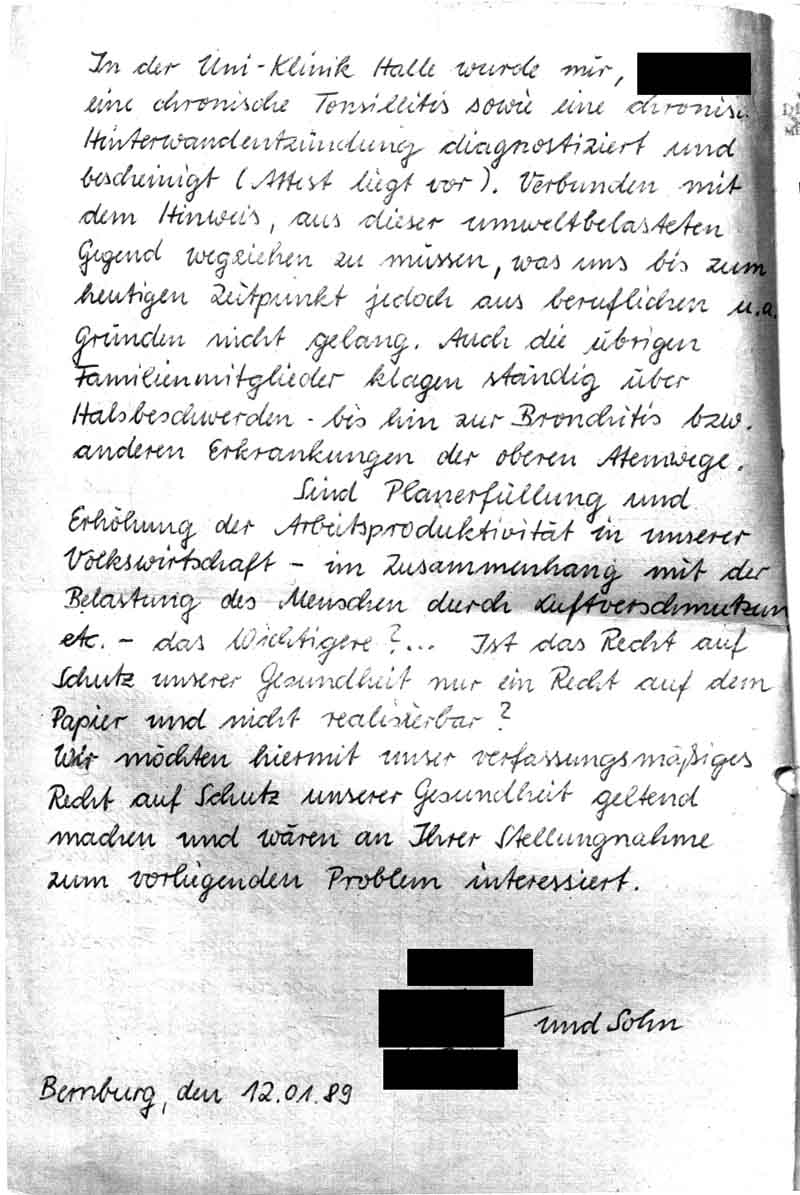 In der Uni-Klinik Halle wurde mir,
eine chronische Tonsillitis sowie eine chronisc
Hinterwandentzündung diagnostiziert und
bescheinigt (Attest liegt vor). Verbunden mit
dem Hinweis, aus dieser umweltbelasteten
Gegend wegziehen zu müssen, was uns bis zum
heutigen Zeitpunkt jedoch aus beruflichen u.a.
Gründen nicht gelang. Auch die übrigen
Familienmitglieder klagen ständig über
Halsbeschwerden - bis hin zur Bronchitis bzw.
anderen Erkrankungen der oberen Atemwege.
Sind Planerfüllung und
Erhöhung der Arbeitsproduktivität in unserer
Volkswirtschaft - im Zusammenhang mit der
Belastung des Menschen durch Luftverschmutzun
etc. - das Wichtigere?... Ist das Recht auf
Schutz unserer Gesundheit nur ein Recht auf dem
Papier und nicht realisierbar?
Wir möchten hiermit unser verfassungsmäßiges
Recht auf Schutz unserer Gesundheit geltend
machen und wären an Ihrer Stellungnahme
zum vorliegenden Problem interessiert.
und Sohn
Bernburg, den 12.01.89